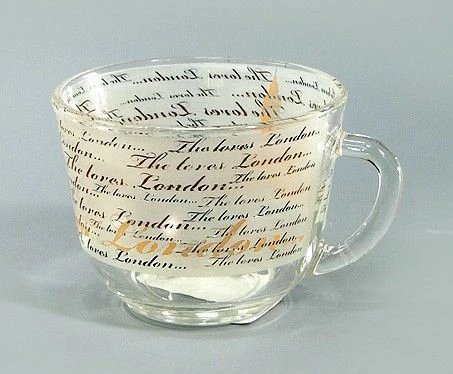 The loves London...
The loves London...
The loves London...
London...
The loves London...
London...
The loves London...
The loves London...
The loves London...
The loves London...
The loves London...
The loves London...
The loves London...
London
The loves London...
The loves London...
The loves London...